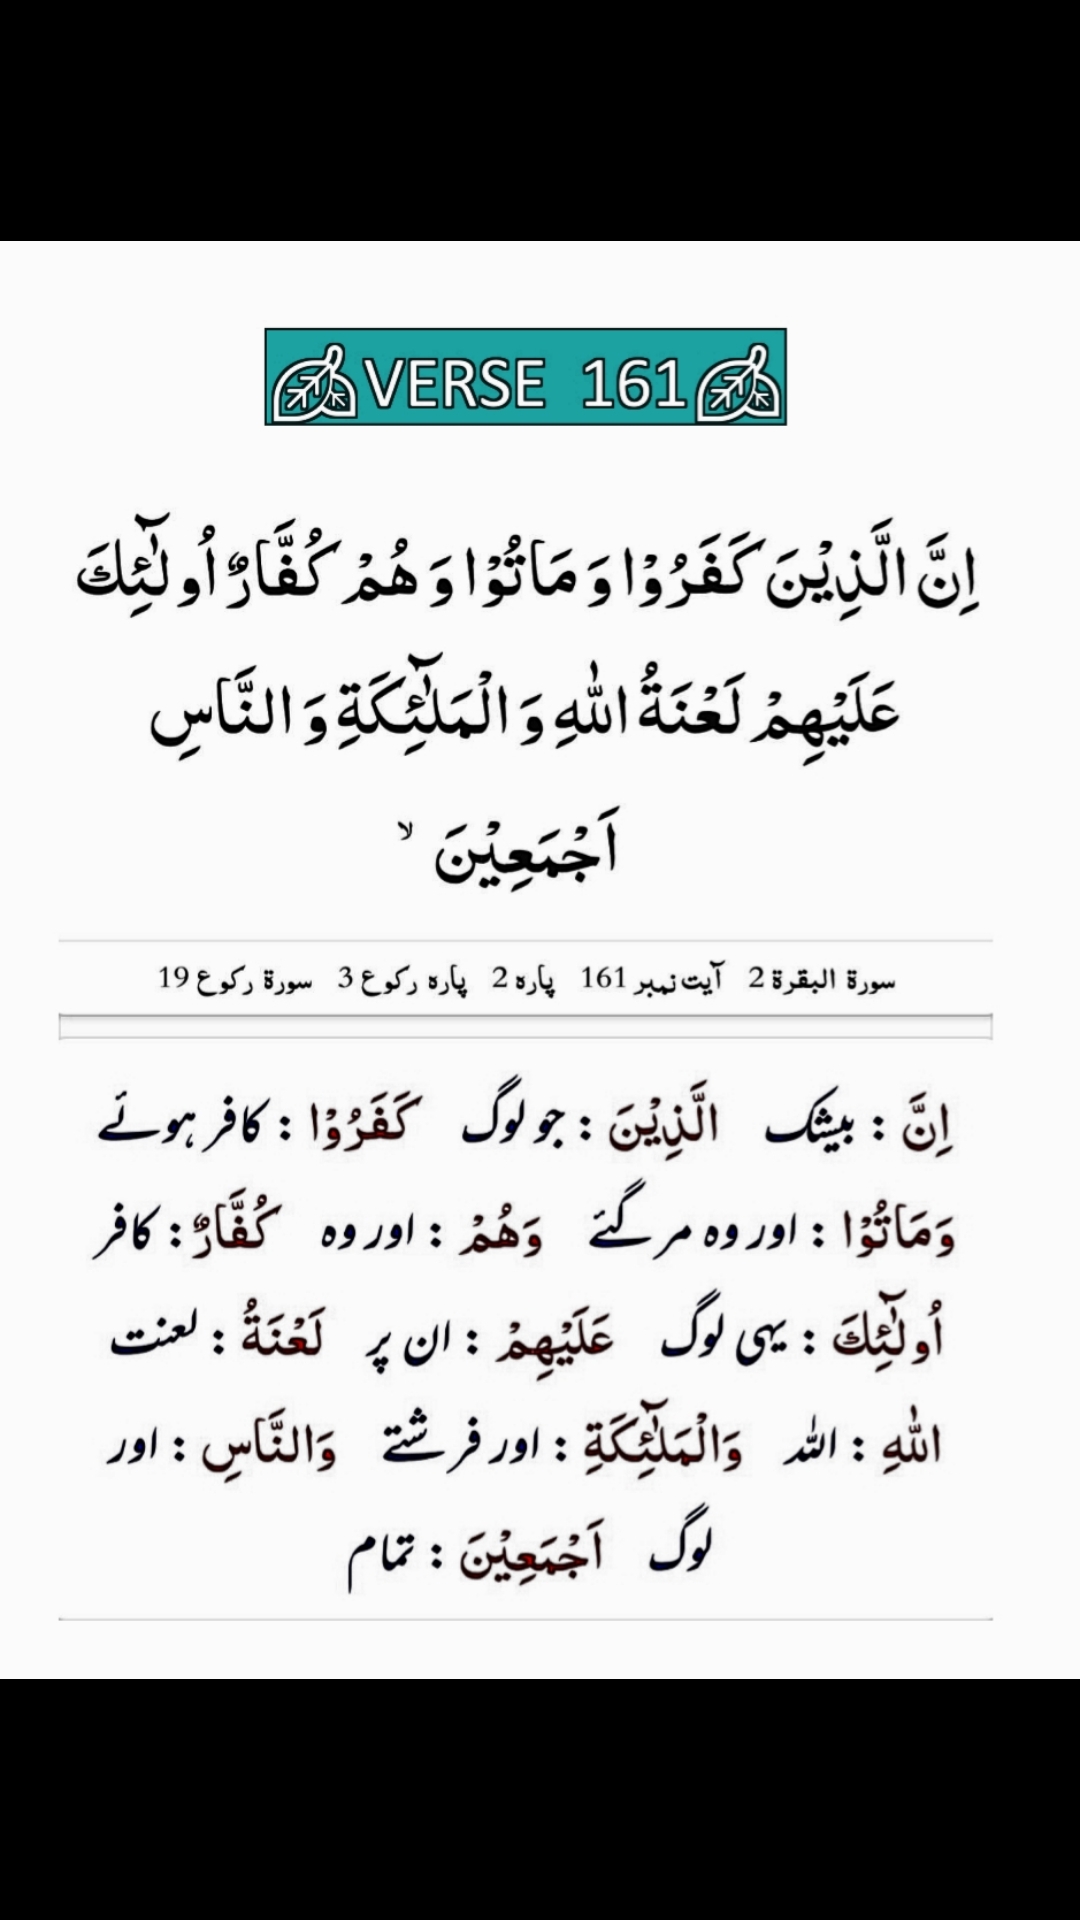 VERSE 161
اِنَّ الَّذِيْنَ كَفَرُوْا وَ مَاتُوْا وَ هُمْ كُفَّارٌ اُولٰٓئِكَ
عَلَيْهِمْ لَعْنَةُ اللّٰهِ وَ الْمَلٰٓئِكَةِ وَ النَّاسِ
اَجْمَعِيْنَ ۙ
سورة البقرة 2 آیت نمبر 161 پارہ 2 پارہ رکوع 3 سورة رکوع 19
اِنَّ : بیشک الَّذِيْنَ : جو لوگ كَفَرُوْا : کافر ہوئے
وَمَاتُوْا : اور وہ مر گئے وَهُمْ : اور وہ كُفَّارٌ : کافر
اُولٰٓئِكَ : یہی لوگ عَلَيْهِمْ : ان پر لَعْنَةُ : لعنت
اللّٰهِ : اللہ وَالْمَلٰٓئِكَةِ : اور فرشتے وَالنَّاسِ : اور
لوگ اَجْمَعِيْنَ : تمام